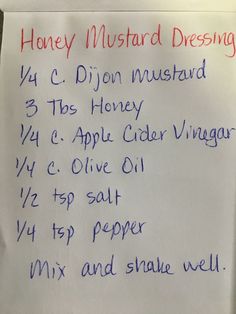 Honey Mustard Dressing
1/4 c. Dijon mustard
3 Tbs Honey
1/4 c. Apple Cider Vinegar
1/4 c. Olive Oil
1/2 tsp salt
1/4 tsp pepper
Mix and shake well.